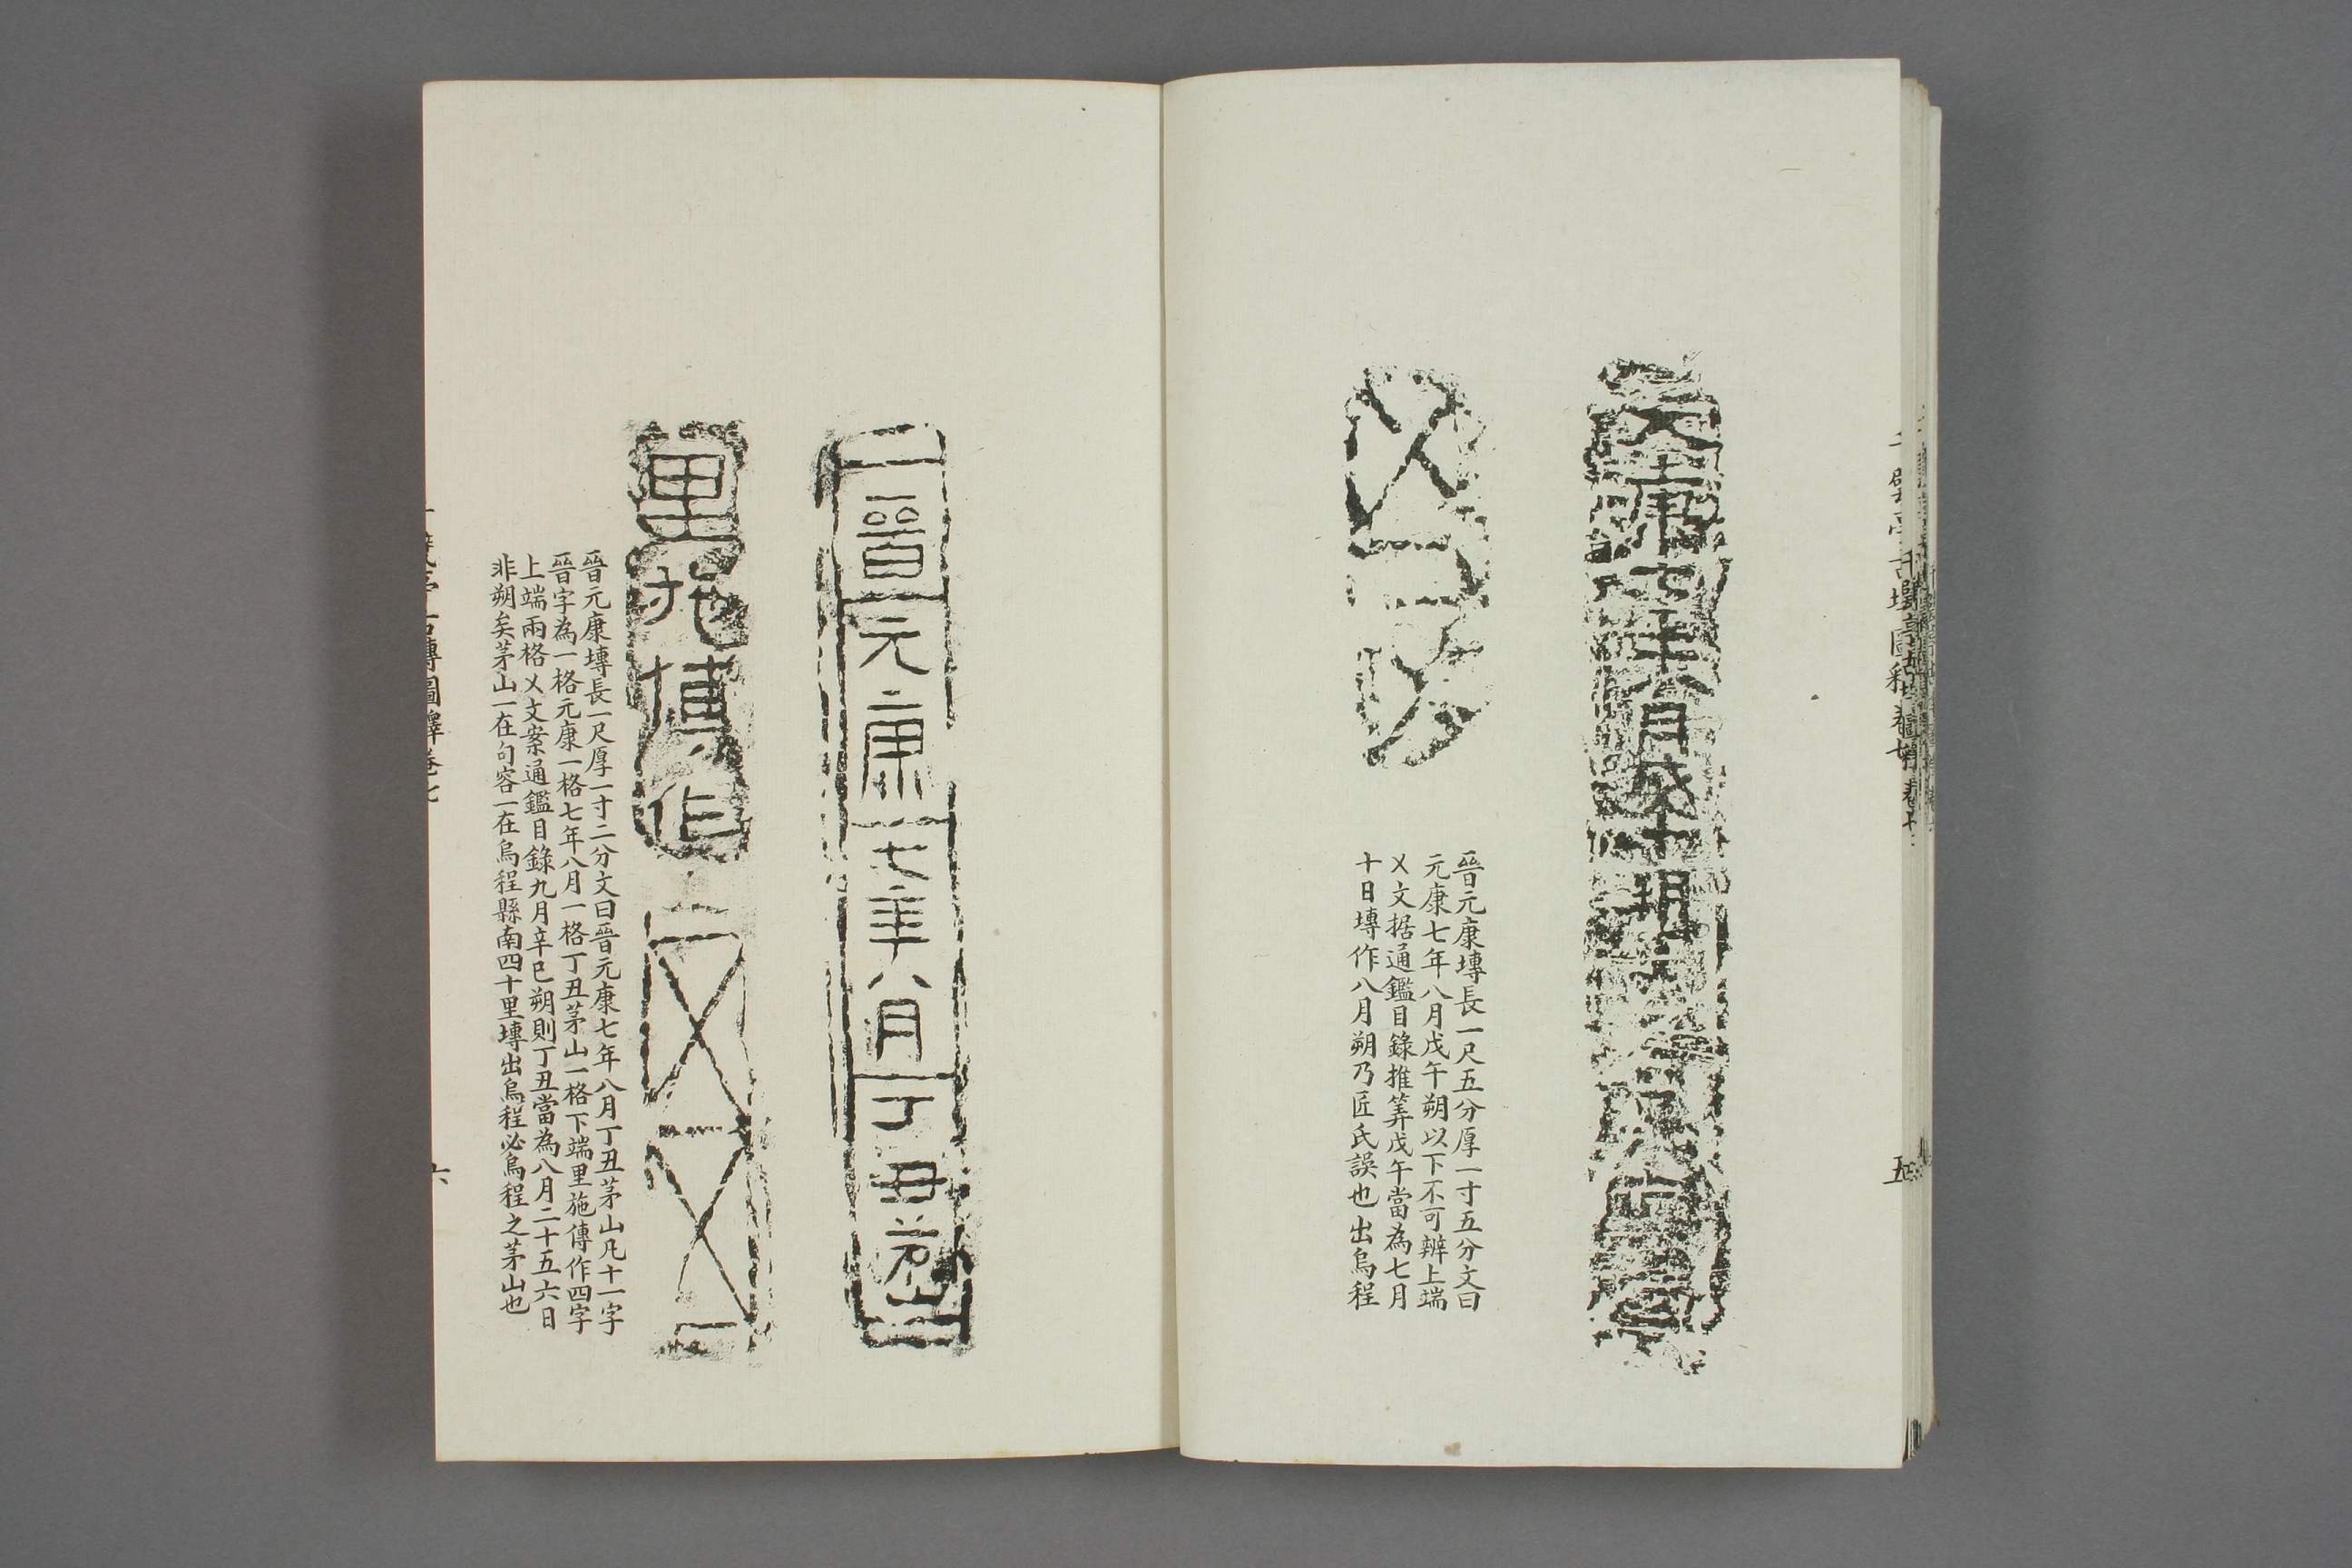 元康七年八月戊午朔
晉元康塼長一尺五分厚一寸五分文曰
元康七年八月戊午朔以下不可辨上端
㐅文据通鑑目錄推筭戊午當為七月
十日塼作八月朔乃匠氏誤也出烏程
五
晉元康七年八月丁丑茅山
里施傳作
晉元康塼長一尺厚一寸二分文曰晉元康七年八月丁丑茅山凡十一字
晉字為一格元康一格七年八月一格丁丑茅山一格下端里施傳作四字
上端兩格㐅文案通鑑目錄九月辛巳朔則丁丑當為八月二十五六日
非朔矣茅山一在句容一在烏程縣南四十里塼出烏程必烏程之茅山也
六